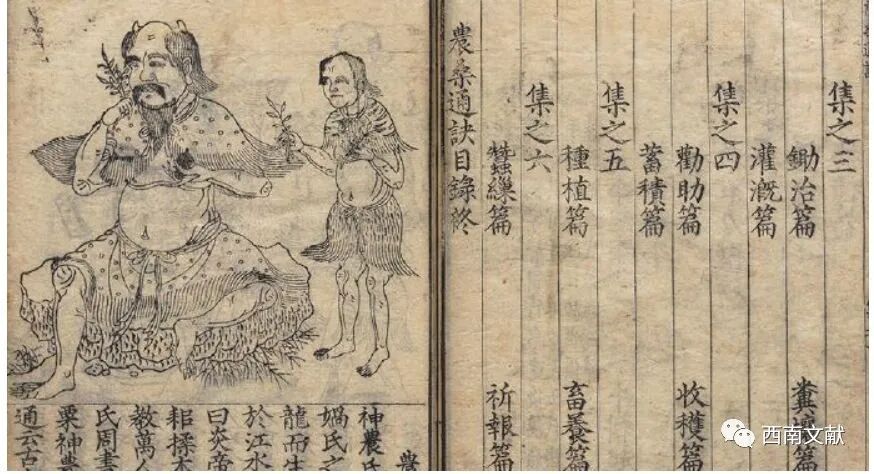 集之三
鋤治篇 糞 篇
灌溉篇
集之四
勸助篇 收穫篇
蓄積篇
集之五
種植篇 畜養篇
集之六
蠶繅篇 祈報篇
農桑通訣目錄終
農
神農氏
媧氏之
龍而生
於江水
曰炎帝
耜揉木
教萬人
氏周書
粟神農
通云古
西南文献